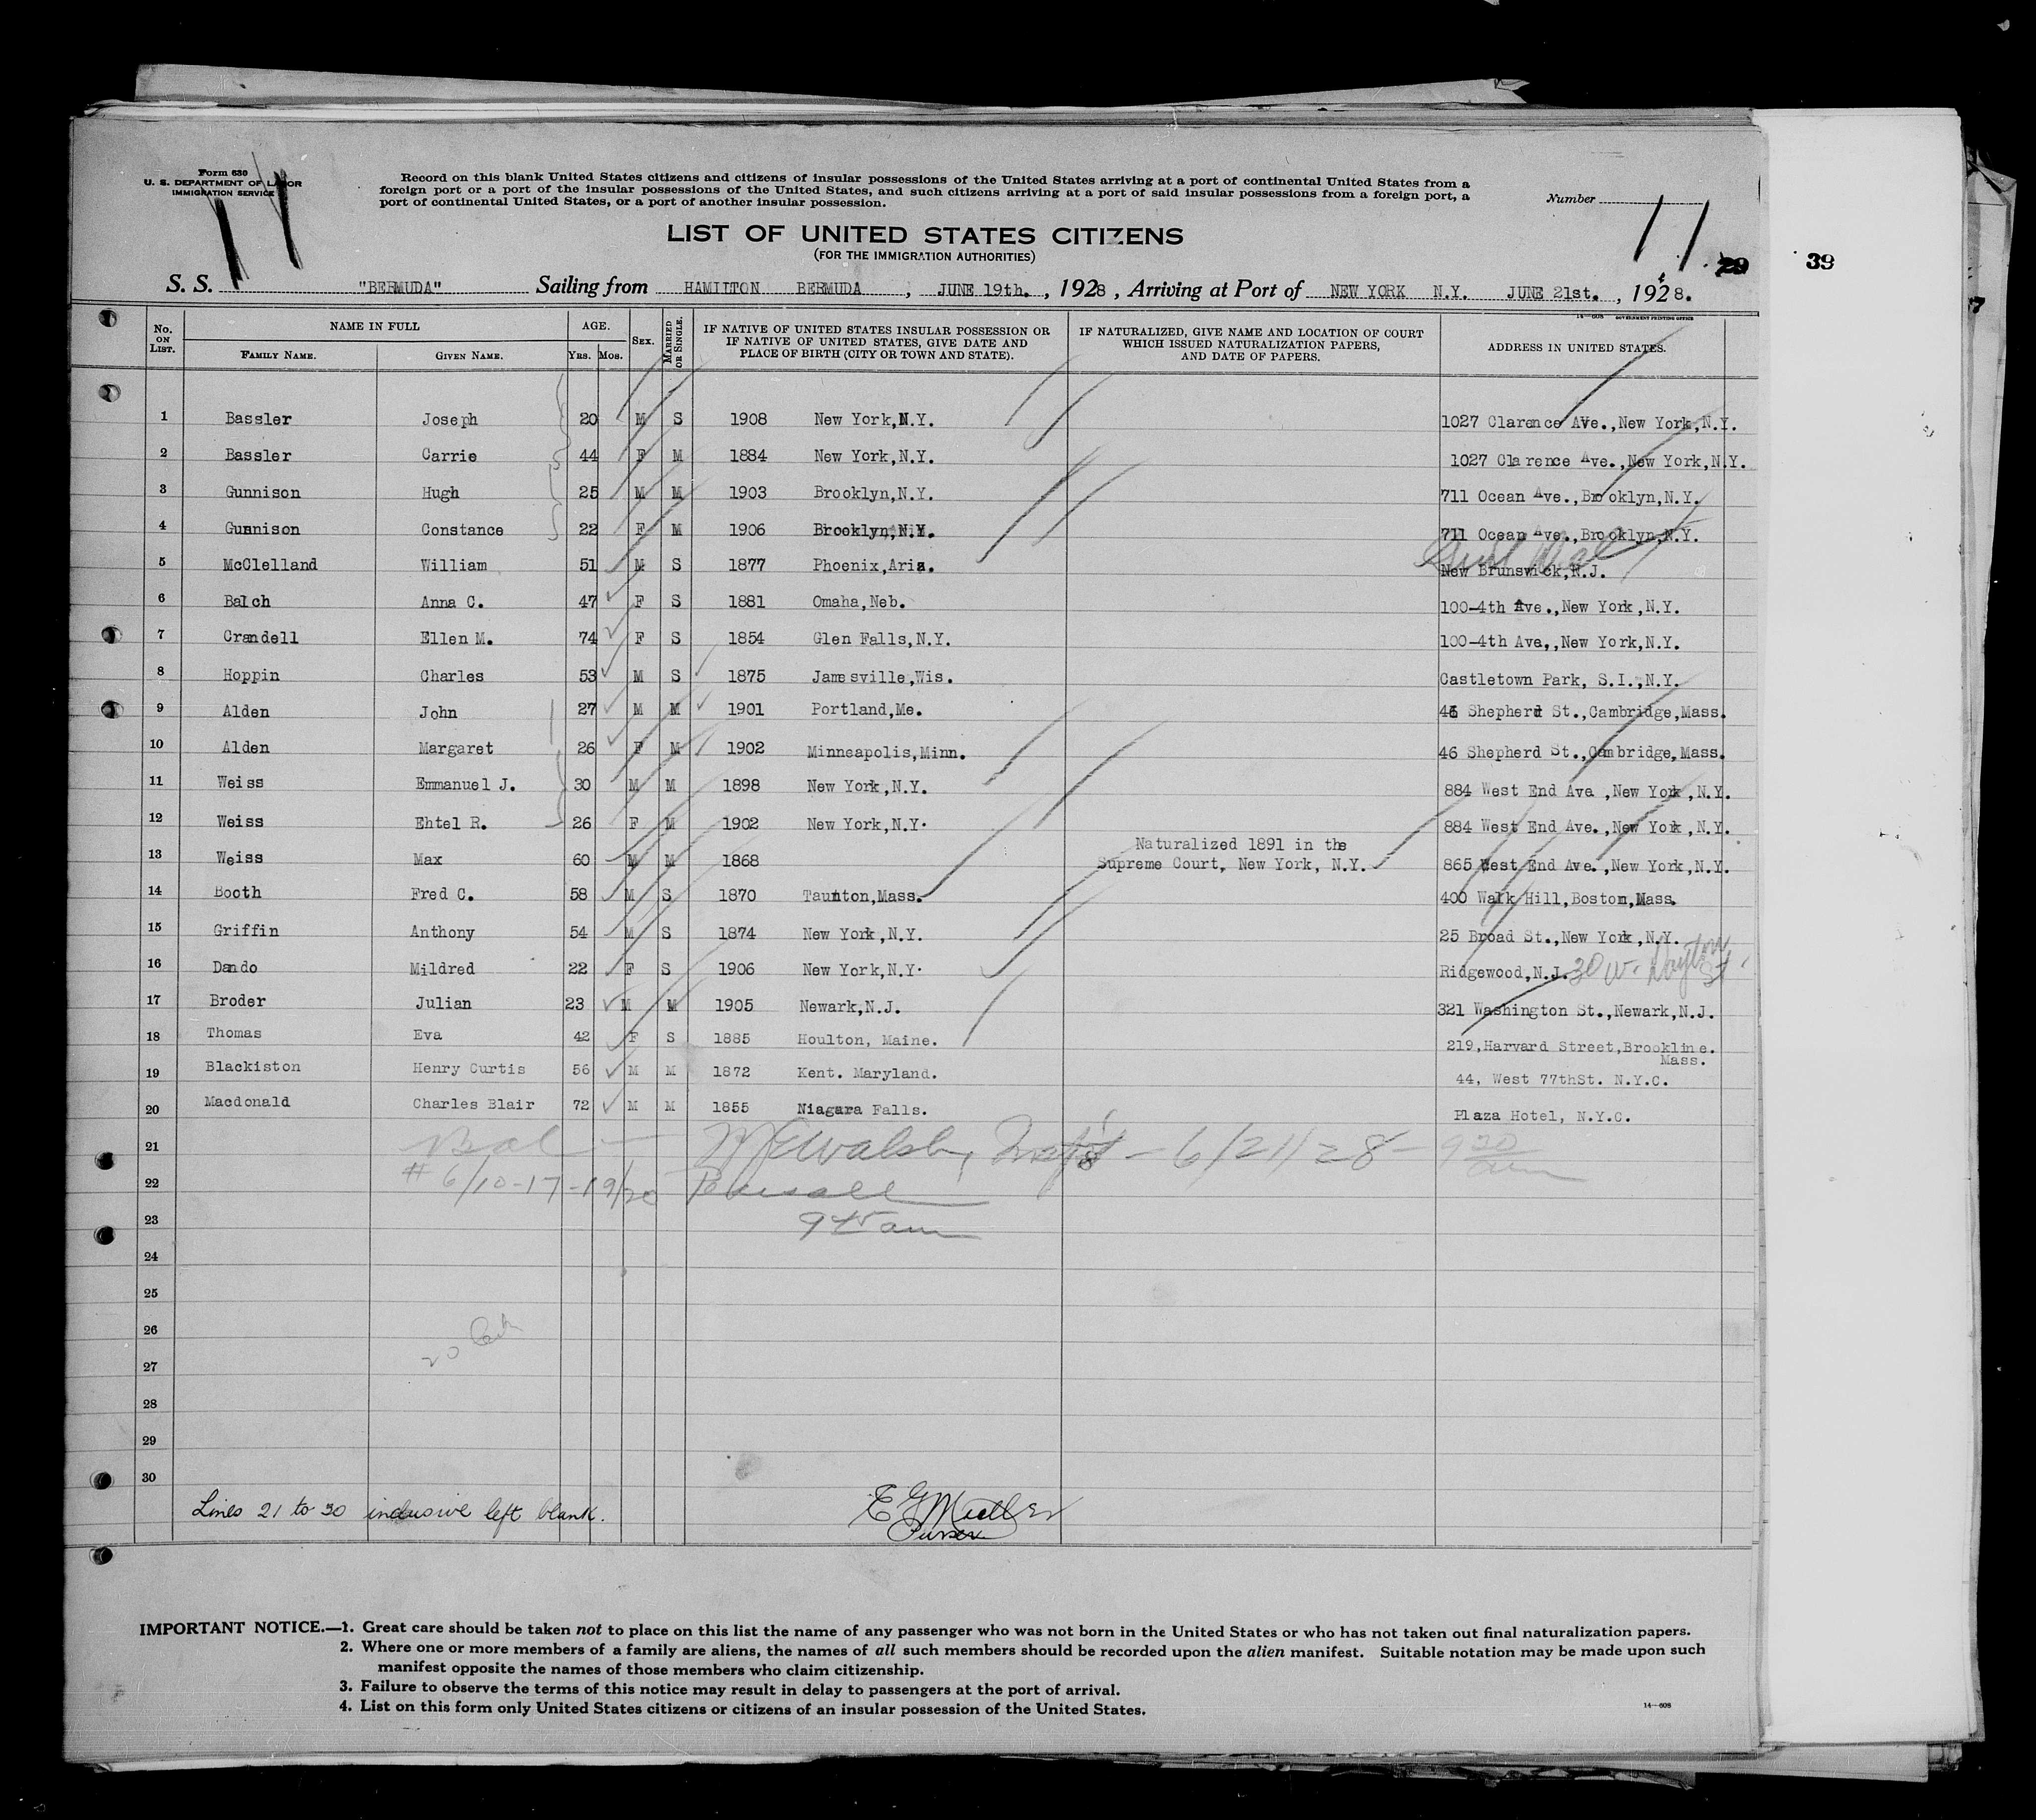 Form 630
U. S. DEPARTMENT OF LABOR
IMMIGRATION SERVICE
Record on this blank United States citizens and citizens of insular possessions of the United States arriving at a port of continental United States from a
foreign port or a port of the insular possessions of the United States, and such citizens arriving at a port of said insular possessions from a foreign port, a
port of continental United States, or a port of another insular possession.
Number
11 11
29 39
LIST OF UNITED STATES CITIZENS
(FOR THE IMMIGRATION AUTHORITIES)
S. S. "BERMUDA" Sailing from HAMILTON BERMUDA , JUNE 19th. , 1928 , Arriving at Port of NEW YORK N.Y. JUNE 21st. , 1928.
14—608 GOVERNMENT PRINTING OFFICE
No. ON LIST. NAME IN FULL FAMILY NAME. GIVEN NAME. AGE. YRS. MOS. SEX. MARRIED OR SINGLE. IF NATIVE OF UNITED STATES INSULAR POSSESSION OR IF NATIVE OF UNITED STATES, GIVE DATE AND PLACE OF BIRTH (CITY OR TOWN AND STATE). IF NATURALIZED, GIVE NAME AND LOCATION OF COURT WHICH ISSUED NATURALIZATION PAPERS, AND DATE OF PAPERS. ADDRESS IN UNITED STATES.
1 Bassler Joseph 20 M S 1908 New York,N.Y. 1027 Clarence Ave.,New York,N.Y.
2 Bassler Carrie 44 F M 1884 New York,N.Y. 1027 Clarence Ave.,New York,N.Y.
3 Gunnison Hugh 25 M M 1903 Brooklyn,N.Y. 711 Ocean Ave.,Brooklyn,N.Y.
4 Gunnison Constance 22 F M 1906 Brooklyn,N.Y. 711 Ocean Ave.,Brooklyn,N.Y.
5 McClelland William 51 M S 1877 Phoenix,Aria. New Brunswick,N.J.
6 Balch Anna C. 47 F S 1881 Omaha,Neb. 100-4th Ave.,New York,N.Y.
7 Crandell Ellen M. 74 F S 1854 Glen Falls,N.Y. 100-4th Ave,,New York,N.Y.
8 Hoppin Charles 53 M S 1875 Jamesville,Wis. Castletown Park, S.I.,N.Y.
9 Alden John 27 M M 1901 Portland,Me. 46 Shepherd St.,Cambridge,Mass.
10 Alden Margaret 26 F M 1902 Minneapolis,Minn. 46 Shepherd St.,Cambridge,Mass.
11 Weiss Emmanuel J. 30 M M 1898 New York,N.Y. 884 West End Ave ,New York,N.Y.
12 Weiss Ehtel R. 26 F M 1902 New York,N.Y. 884 West End Ave.,New York,N.Y.
13 Weiss Max 60 M M 1868 Naturalized 1891 in the Supreme Court, New York, N.Y. 865 West End Ave.,New York,N.Y.
14 Booth Fred C. 58 M S 1870 Taunton,Mass. 400 Walk Hill,Boston,Mass.
15 Griffin Anthony 54 M S 1874 New York,N.Y. 25 Broad St.,New York,N.Y.
16 Dando Mildred 22 F S 1906 New York,N.Y. Ridgewood,N.J. 30 W. Dayton St.
17 Broder Julian 23 M M 1905 Newark,N.J. 321 Washington St.,Newark,N.J.
18 Thomas Eva 42 F S 1885 Houlton, Maine. 219,Harvard Street,Brookline. Mass.
19 Blackiston Henry Curtis 56 M M 1872 Kent. Maryland. 44, West 77thSt. N.Y.C.
20 Macdonald Charles Blair 72 M M 1855 Niagara Falls. Plaza Hotel, N.Y.C.
21 Bal — Walsh, - 6/21/28 - 9 30 am
22 # 6/10-17-19/20
23 9 45 am
24
25
26
20
27
28
29
30
Lines 21 to 30 inclusive left blank.
Purser
IMPORTANT NOTICE.—1. Great care should be taken not to place on this list the name of any passenger who was not born in the United States or who has not taken out final naturalization papers.
2. Where one or more members of a family are aliens, the names of all such members should be recorded upon the alien manifest. Suitable notation may be made upon such
manifest opposite the names of those members who claim citizenship.
3. Failure to observe the terms of this notice may result in delay to passengers at the port of arrival.
4. List on this form only United States citizens or citizens of an insular possession of the United States.
14—608